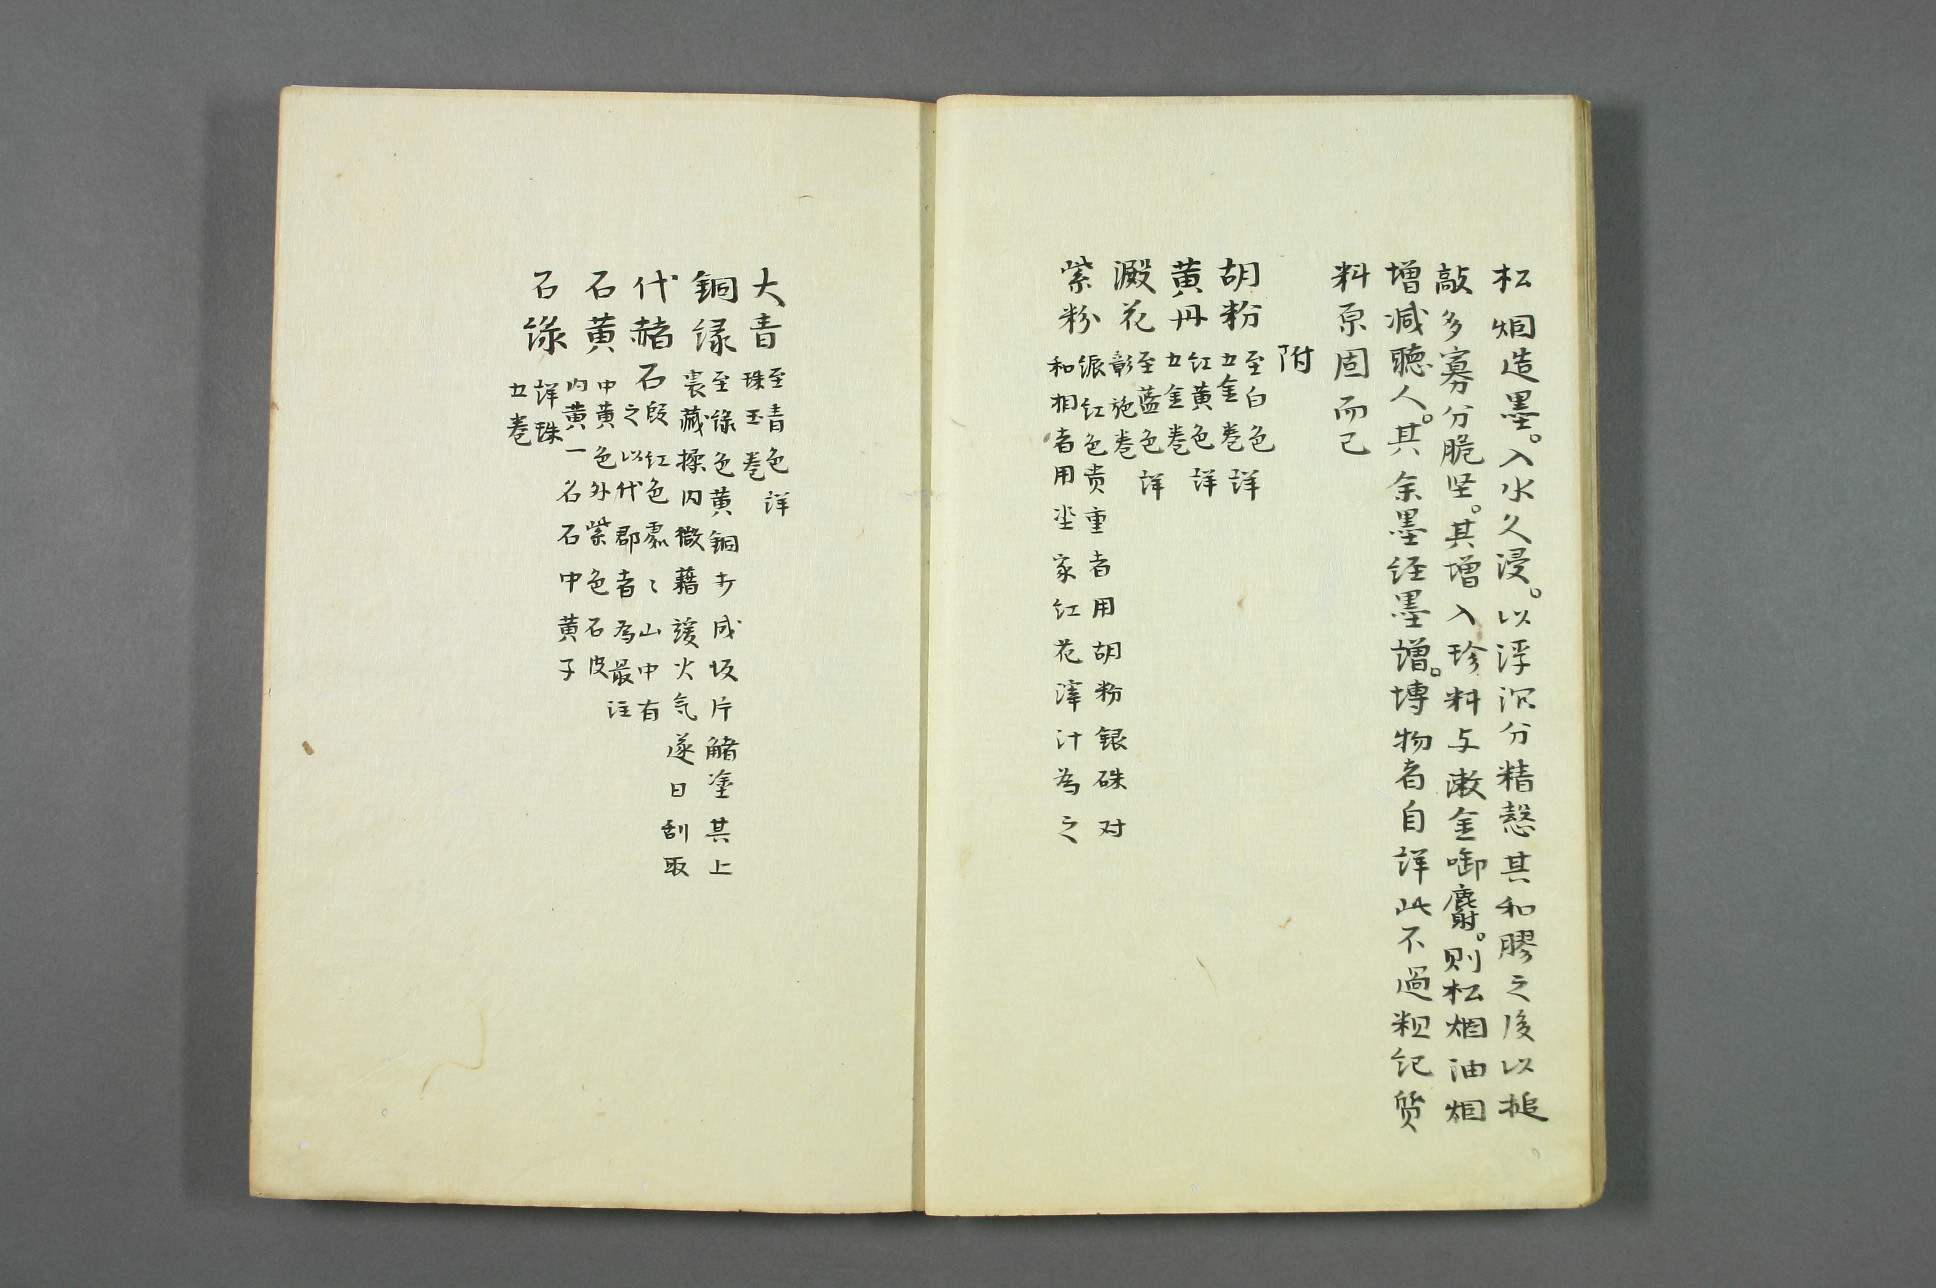 松烟造墨。入水久浸。以浮沉分精慤其和膠之後以搥
敲多寡分脆坚。其增入珍料与漱金啣麝。则松烟油烟
增减聽人。其余墨经墨譜。博物者自詳此不過粗记质
料原固而已
附
胡粉 至白色詳
五金卷
黄丹 红黄色詳
五金卷
澱花 至蓝色詳
彰施卷
紫粉 縀红色贵重者用胡粉银硃对
和粗者用染家红花滓汁為之
大青 至青色詳
珠玉卷
銅绿 至绿色黄銅打成板片醋塗其上
裹藏糠内微藉煖火气逐日刮取
代赭石 殷红色處〻山中有
之以代郡者為最详
石黄 中黄色外紫色石皮
内黄一名石中黄子
石绿 詳珠
五卷